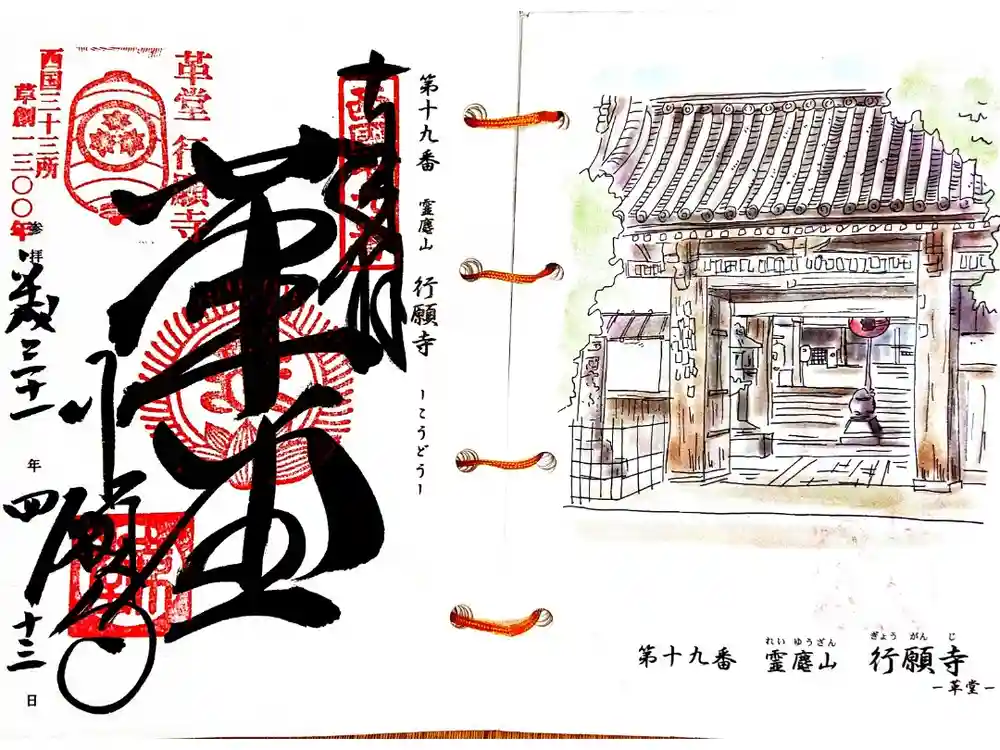 奉拝
第十九番 霊麀山 行願寺 ーこうどうー
革堂
行願寺
革堂 行願寺
西国三十三所
草創一三〇〇年
参拝
平成三十一年四月十三日
第十九番 霊麀山 行願寺
れいゆうざん ぎょうがんじ
ー革堂ー